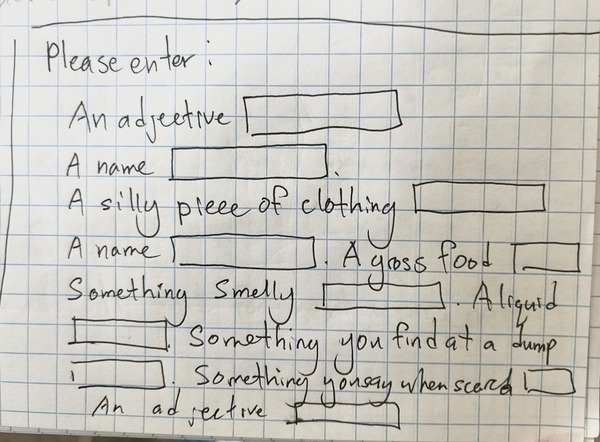 Please enter:
An adjective
A name .
A silly piece of clothing
A name . A gross food
Something Smelly . A liquid
. Something you find at a dump
. Something you say when scared
An adjective